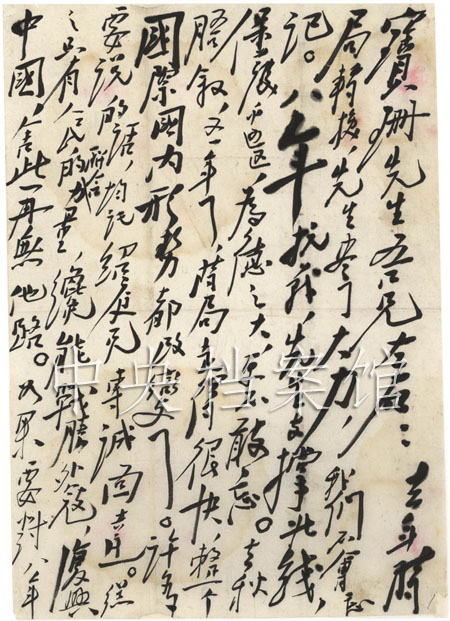 寶珊先生吾兄左右：去年時
局轉換，先生盡了大力，我們不會忘
記。八年抗戰，先生支撐北線，
保護边區，為德之大，更不敢忘。去秋
晤叙，又一年了，時局走得很快，整个
國際國内形勢都改變了。許多
要说的話，均託紹庭兄專誠面達。總
之只有人民的聯合力量，纔能戰勝外寇，復興
中國，舍此再無他路。如果要對八年
中央档案馆